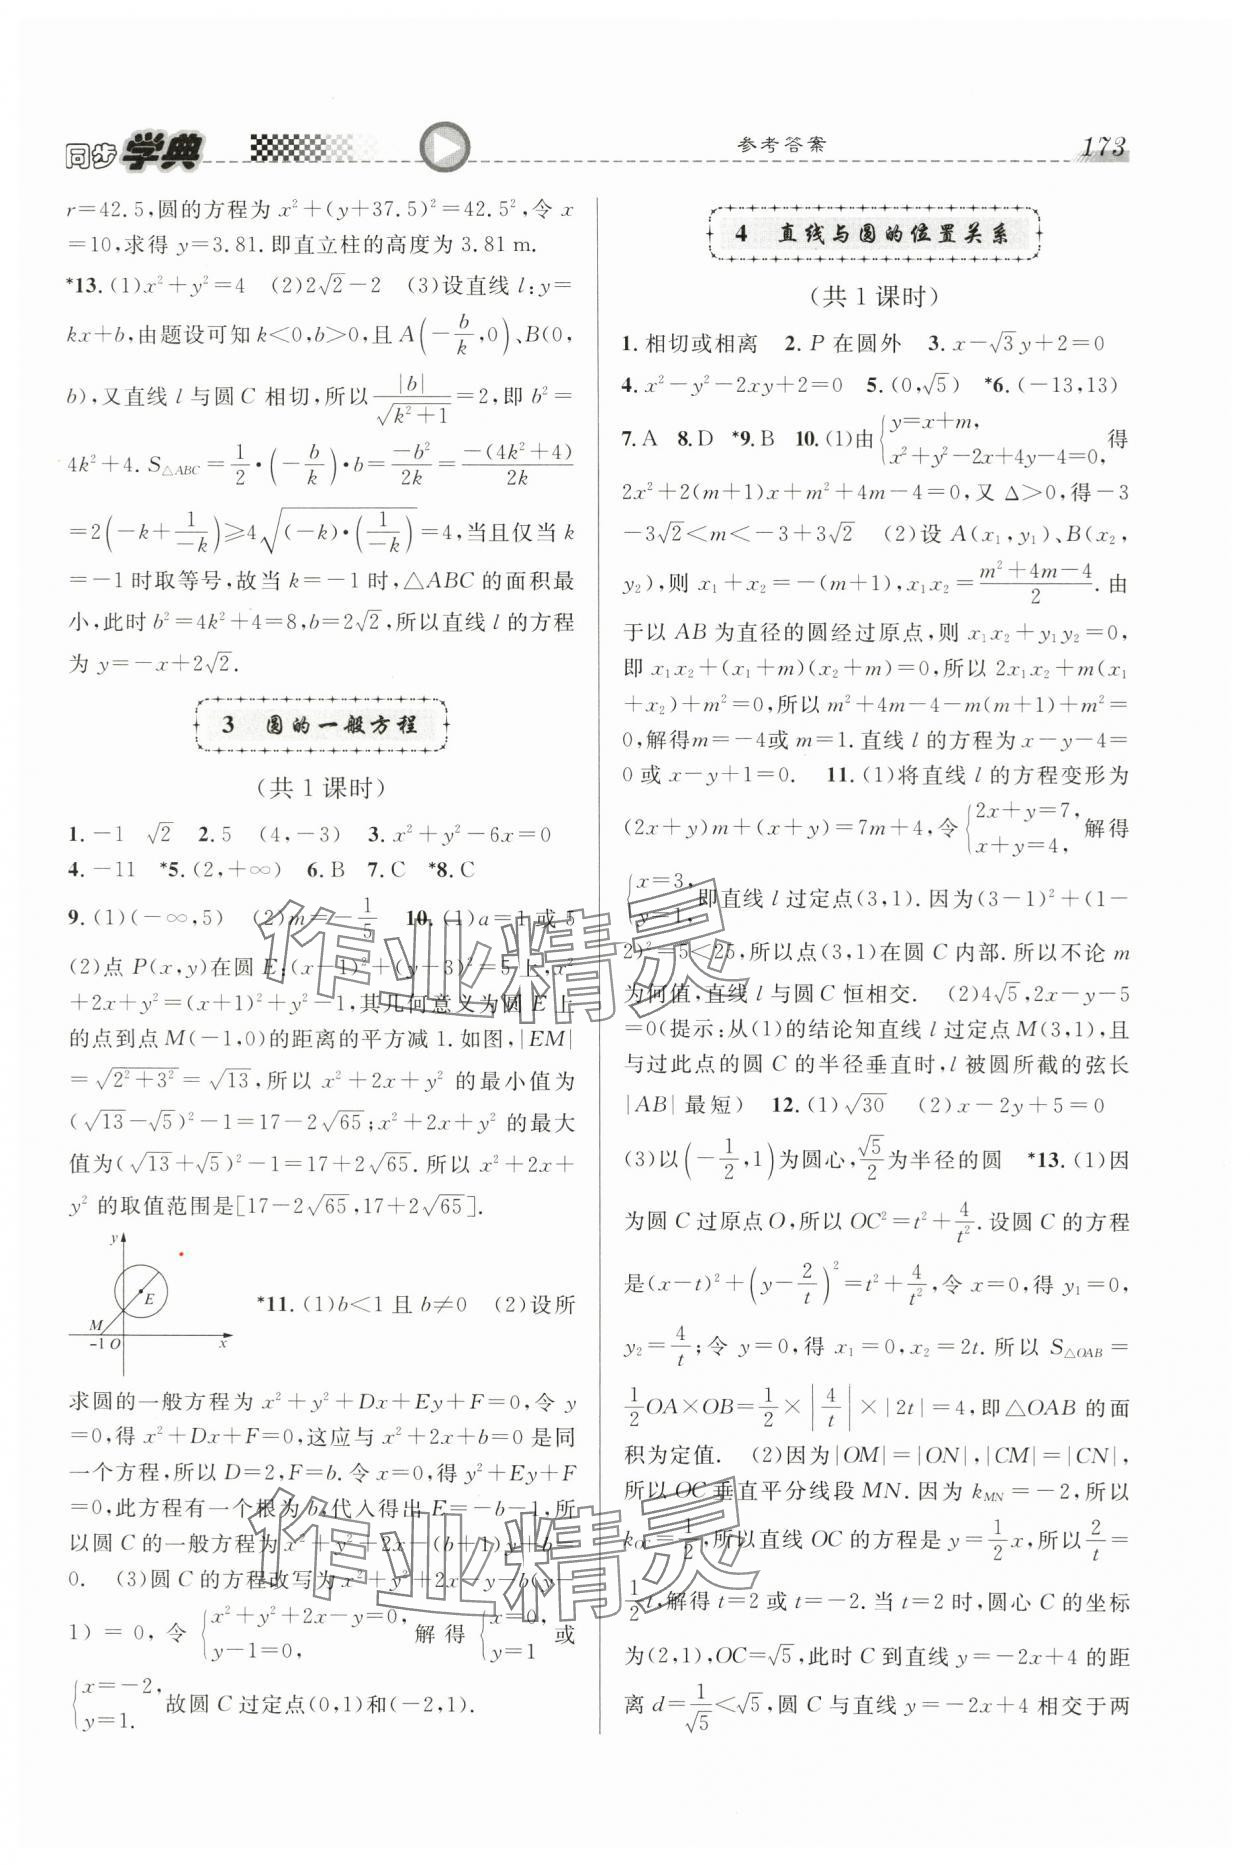 同步学典
参考答案
173
r=42.5,圆的方程为 x²+(y+37.5)²=42.5²,令 x
=10,求得 y=3.81.即直立柱的高度为 3.81 m.
*13.(1)x²+y²=4 (2)2√2-2 (3)设直线 l:y=
kx+b,由题设可知 k<0,b>0,且 A(-b/k,0)、B(0,
b),又直线 l 与圆 C 相切,所以 |b|/√(k²+1)=2,即 b²=
4k²+4.S△ABC=1/2•(-b/k)•b=-b²/2k=-(4k²+4)/2k
=2(-k+1/-k)≥4√((-k)•(1/-k))=4,当且仅当 k
=-1 时取等号,故当 k=-1 时,△ABC 的面积最
小,此时 b²=4k²+4=8,b=2√2,所以直线 l 的方程
为 y=-x+2√2.
3 圆的一般方程
(共 1 课时)
1.-1 √2 2.5 (4,-3) 3.x²+y²-6x=0
4.-11 *5.(2,+∞) 6.B 7.C *8.C
9.(1)(-∞,5) (2)m=-1/5 10.(1)a=1 或 5
(2)点 P(x,y)在圆 E:(x-1)²+(y-3)²=5 上,x²
+2x+y²=(x+1)²+y²-1,其几何意义为圆 E 上
的点到点 M(-1,0)的距离的平方减 1.如图,|EM|
=√(2²+3²)=√13,所以 x²+2x+y² 的最小值为
(√13-√5)²-1=17-2√65;x²+2x+y² 的最大
值为(√13+√5)²-1=17+2√65.所以 x²+2x+
y² 的取值范围是[17-2√65,17+2√65].
y
E
M
-1 O x
*11.(1)b<1 且 b≠0 (2)设所
求圆的一般方程为 x²+y²+Dx+Ey+F=0,令 y
=0,得 x²+Dx+F=0,这应与 x²+2x+b=0 是同
一个方程,所以 D=2,F=b.令 x=0,得 y²+Ey+F
=0,此方程有一个根为 b,代入得出 E=-b-1,所
以圆 C 的一般方程为 x²+y²+2x-(b+1)y+b=
0. (3)圆 C 的方程改写为 x²+y²+2x-y-b(y-
1)=0,令 {x²+y²+2x-y=0, y-1=0, 解得 {x=0, y=1 或
{x=-2, y=1. 故圆 C 过定点(0,1)和(-2,1).
4 直线与圆的位置关系
(共 1 课时)
1.相切或相离 2.P 在圆外 3.x-√3y+2=0
4.x²-y²-2xy+2=0 5.(0,√5) *6.(-13,13)
7.A 8.D *9.B 10.(1)由{y=x+m, x²+y²-2x+4y-4=0, 得
2x²+2(m+1)x+m²+4m-4=0,又 Δ>0,得-3
-3√2<m<-3+3√2 (2)设 A(x₁,y₁)、B(x₂,
y₂),则 x₁+x₂=-(m+1),x₁x₂=(m²+4m-4)/2.由
于以 AB 为直径的圆经过原点,则 x₁x₂+y₁y₂=0,
即 x₁x₂+(x₁+m)(x₂+m)=0,所以 2x₁x₂+m(x₁
+x₂)+m²=0,所以 m²+4m-4-m(m+1)+m²=
0,解得m=-4或 m=1.直线 l 的方程为 x-y-4=
0 或 x-y+1=0. 11.(1)将直线 l 的方程变形为
(2x+y)m+(x+y)=7m+4,令{2x+y=7, x+y=4, 解得
{x=3, y=1, 即直线 l 过定点(3,1).因为(3-1)²+(1-
2)²=5<25,所以点(3,1)在圆 C 内部.所以不论 m
为何值,直线 l 与圆 C 恒相交. (2)4√5,2x-y-5
=0(提示:从(1)的结论知直线 l 过定点 M(3,1),且
与过此点的圆 C 的半径垂直时,l 被圆所截的弦长
|AB|最短) 12.(1)√30 (2)x-2y+5=0
(3)以(-1/2,1)为圆心,√5/2为半径的圆 *13.(1)因
为圆 C 过原点 O,所以 OC²=t²+4/t².设圆 C 的方程
是(x-t)²+(y-2/t)²=t²+4/t²,令 x=0,得 y₁=0,
y₂=4/t;令 y=0,得 x₁=0,x₂=2t.所以 S△OAB=
1/2OA×OB=1/2×|4/t|×|2t|=4,即△OAB 的面
积为定值. (2)因为|OM|=|ON|,|CM|=|CN|,
所以 OC 垂直平分线段 MN.因为 kMN=-2,所以
kOC=1/2,所以直线 OC 的方程是 y=1/2x,所以2/t=
1/2t,解得 t=2 或 t=-2.当 t=2 时,圆心 C 的坐标
为(2,1),OC=√5,此时 C 到直线 y=-2x+4 的距
离 d=1/√5<√5,圆 C 与直线 y=-2x+4 相交于两
作业精灵
作业精灵